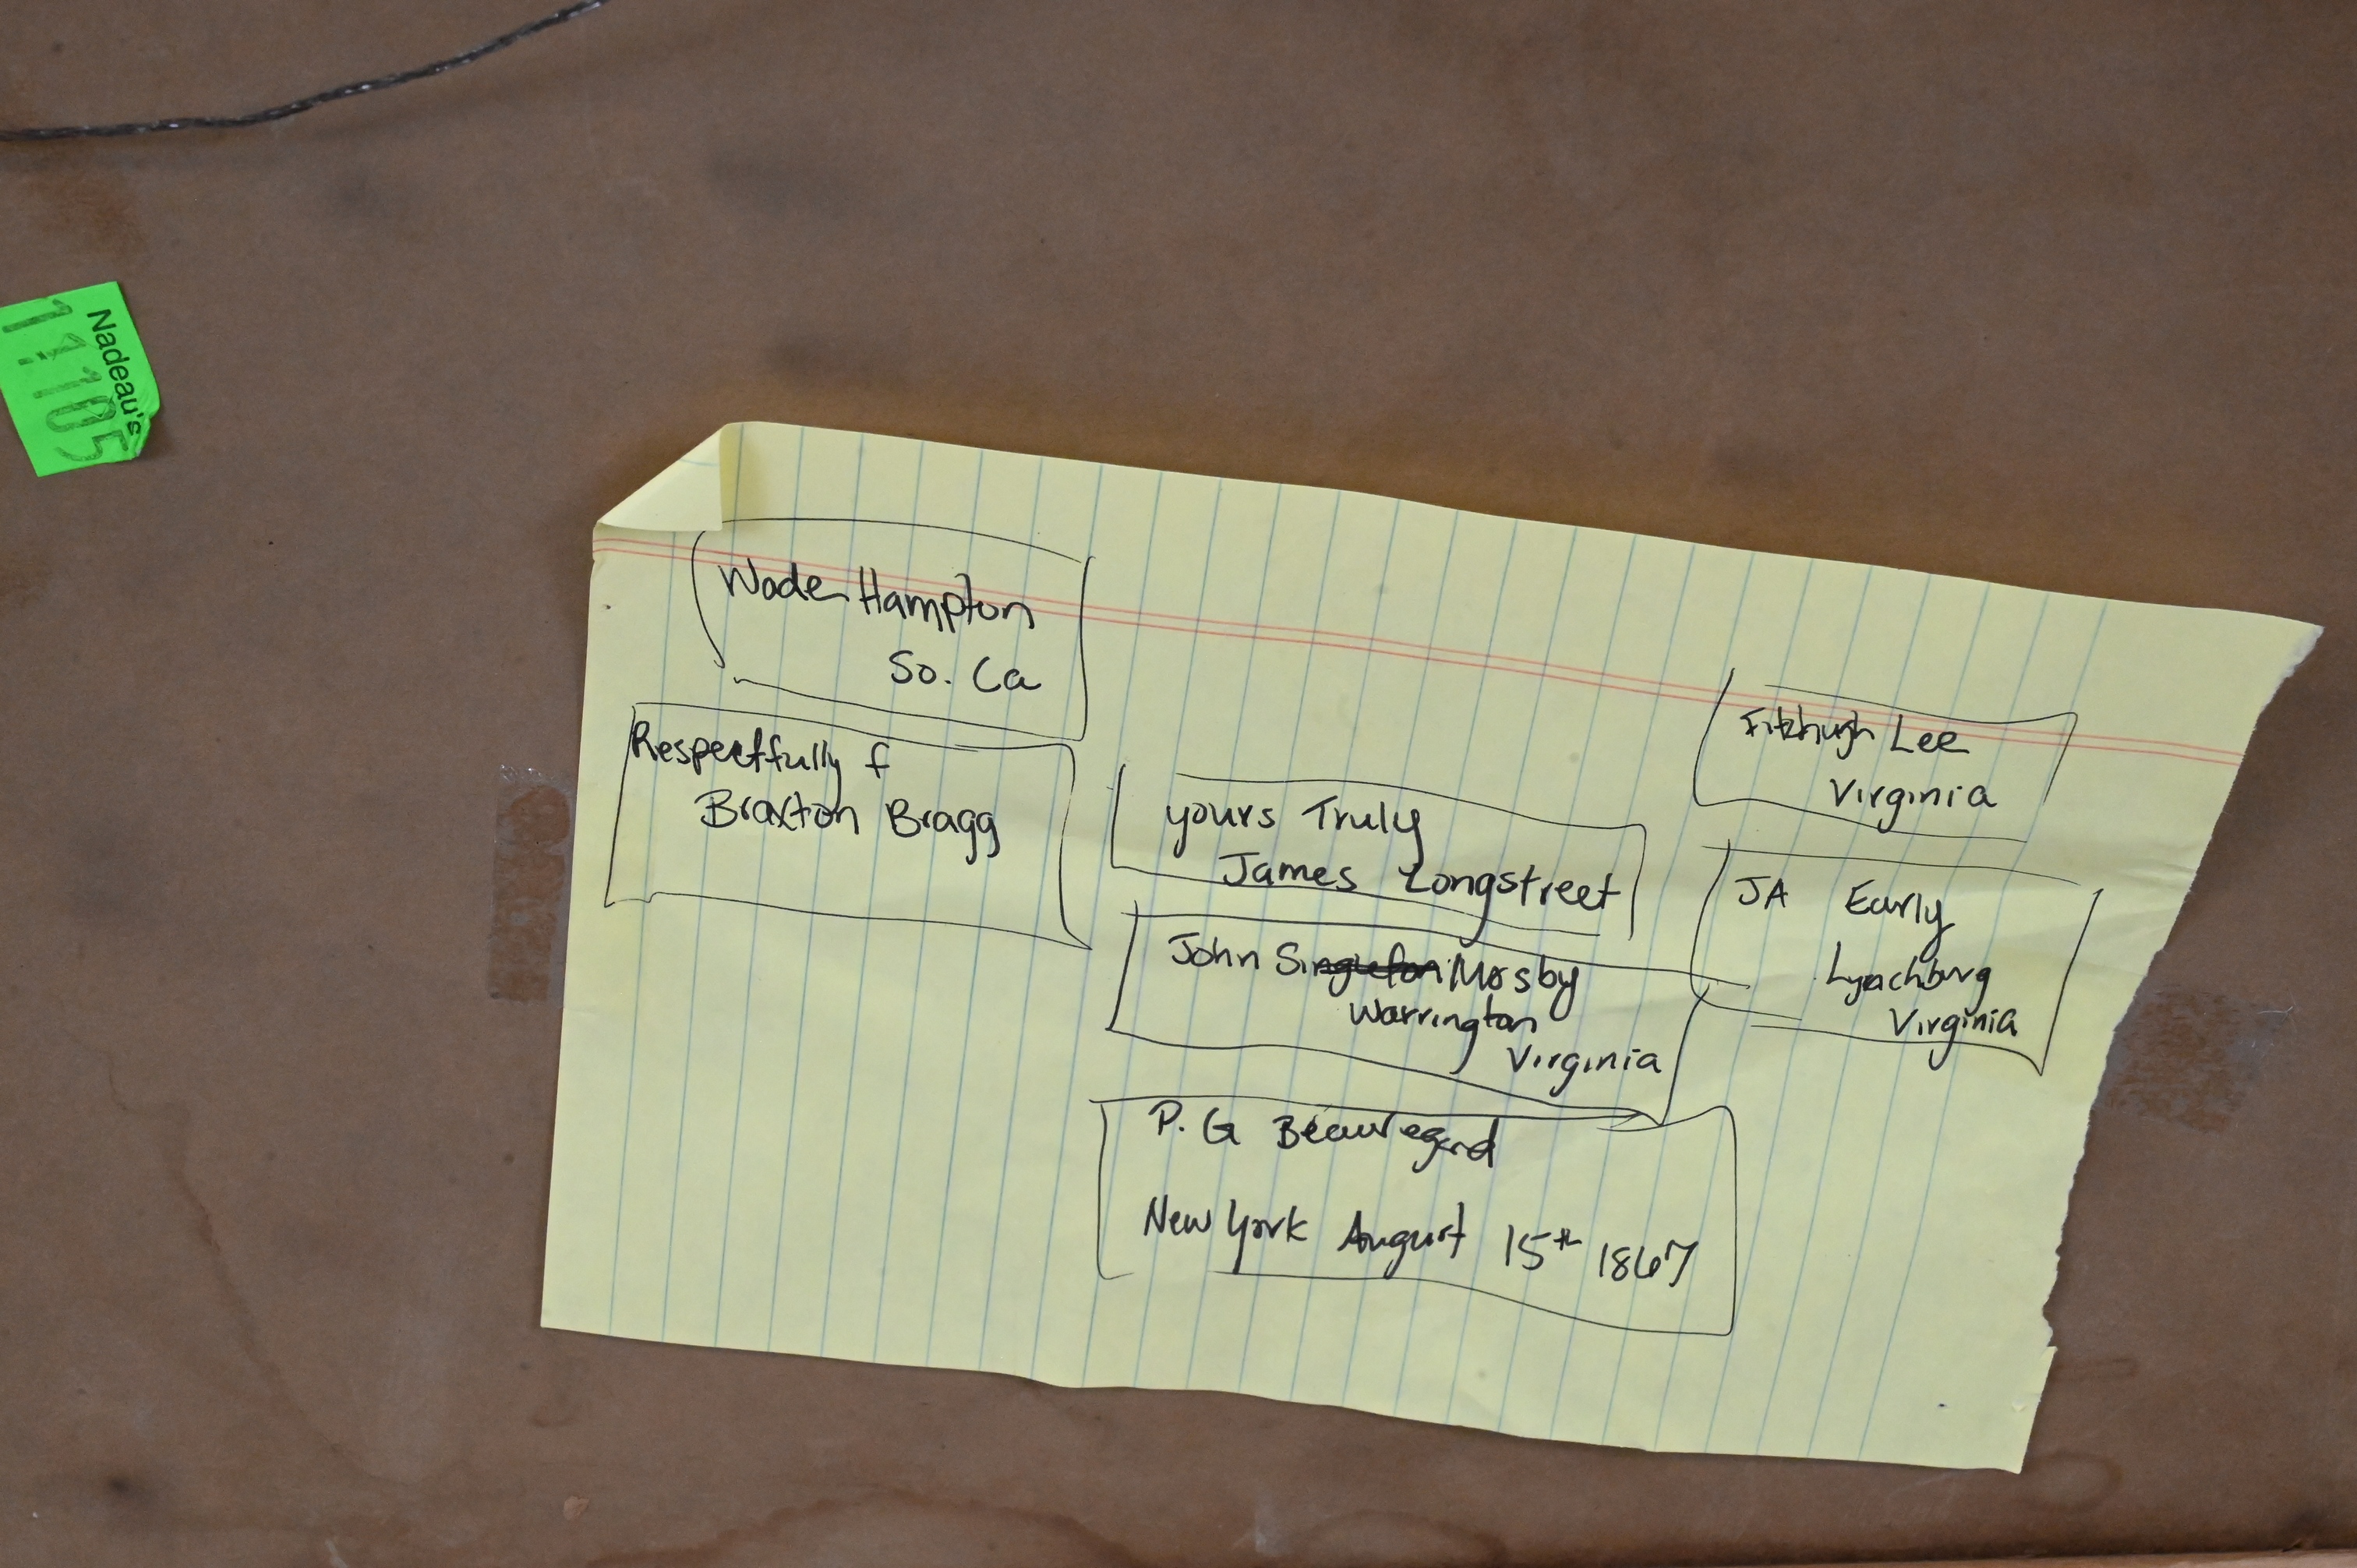 Nadeau's
11:105
Wade Hampton
So. Ca
Respectfully f
Braxton Bragg
yours Truly
James Longstreet
John Singleton Mosby
Warrington
Virginia
P. G Beauregard
New York August 15th 1867
Fitzhugh Lee
Virginia
JA Early
Lynchburg
Virginia